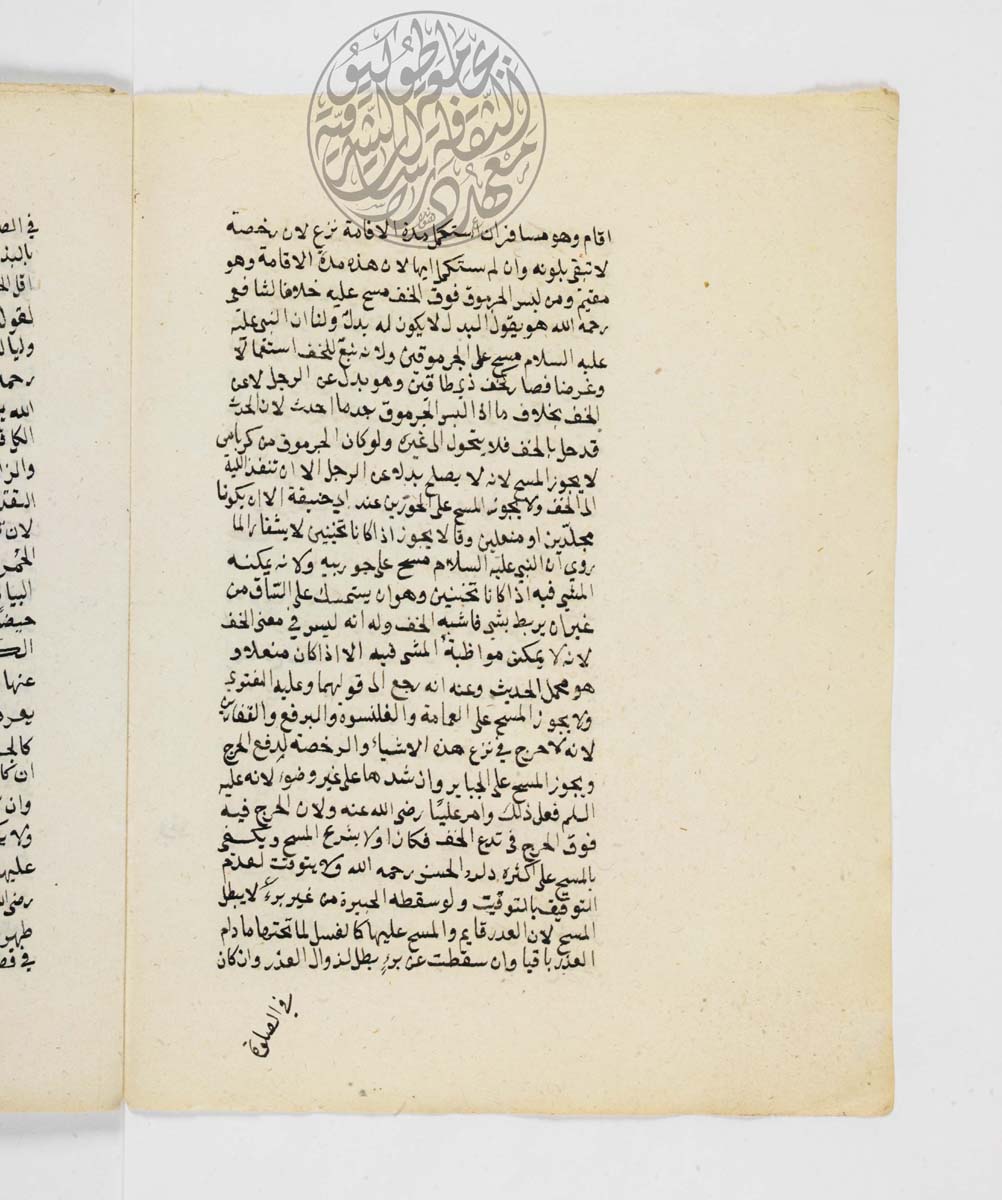 معهد دراسات الثقافة الشرقية جامعة طوكيو
اقام وهو مسافر ان استكمل مدة الاقامة نزع لان رخصة
لا تبقى بدونه وان لم يستكمل ايها لان هذه مدة الاقامة وهو
مقيم ومن لبس الجرموق فوق الخف مسح عليه خلافا لشافعى
رحمه الله هو يقول البدل لا يكون له بدل ولنا ان النبى عليه
عليه السلام مسح على الجرموقين ولانه تبع للخف استعمالا
وغرضا فصار كخف ذى طاقين وهو بدل عن الرجل لا عن
الخف بخلاف ما اذا لبس الجرموق بعدما احدث لان الحدث
قد حل بالخف فلا يتحول الى غيره ولو كان الجرموق من كرباس
لا يجوز المسح لانه لا يصلح بدلا عن الرجل الا ان تنفذ البلة
الى الخف ولا يجوز المسح على الجوربين عند ابي حنيفة الا ان يكونا
مجلدين او منعلين وقالا يجوز اذا كانا ثخينين لا يشفان لما
روي ان النبي عليه السلام مسح على جوربيه ولانه يمكنه
المشي فيه اذا كانا ثخينين وهو ان يستمسك على الساق من
غير ان يربط بشي فاشبه الخف وله انه ليس في معنى الخف
لانه لا يمكن مواظبة المشى فيه الا اذا كان منعلا و
هو محمل الحديث وعنه انه رجع الى قولهما وعليه الفتوي
ولا يجوز المسح على العمامة والقلنسوة والبرقع والقفازين
لانه لا حرج في نزع هذه الاشياء والرخصة لدفع الحرج
ويجوز المسح على الجباير وان شدها على غير وضوء لانه عليه
السلم فعل ذلك وامر عليًا رضى الله عنه ولان الحرج فيه
فوق الحرج فى نزع الخف فكان اولا بشرع المسح ويكتفى
بالمسح على اكثره ذكره الحسن رحمه الله ولا يتوقت لعدم
التوقيف بالتوقيت ولو سقطه الجبيرة من غير برء لا يبطل
المسح لان العذر قايم والمسح عليها كالغسل لما تحتها ما دام
العذر باقيا وان سقطت عن برء بطل لزوال العذر وان كان
في الصلوة